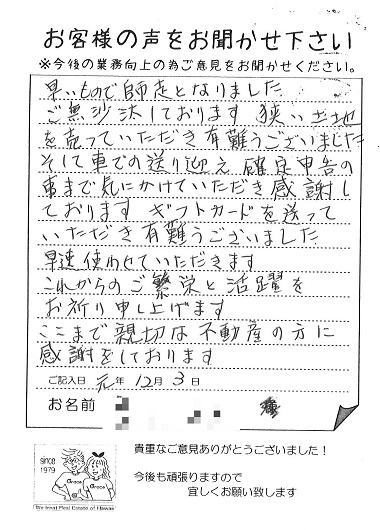 お客様の声をお聞かせ下さい
※今後の業務向上の為ご意見をお聞かせください。
早いもので師走となりました
ご無沙汰しております 狭い土地
を売っていただき有難うございました
そして車での送り迎え 確定申告の
事まで気にかけていただき感謝し
ております ギフトカードを送って
いただき有難うございました
早速使わせていただきます
これからのご繁栄と活躍を
お祈り申し上げます
ここまで親切な不動産の方に
感謝をしております
ご記入日 元年 12月 3日
お名前 様
since
1979
Grace
Grace
貴重なご意見ありがとうございました！
今後も頑張りますので
宜しくお願い致します
Real Estate of